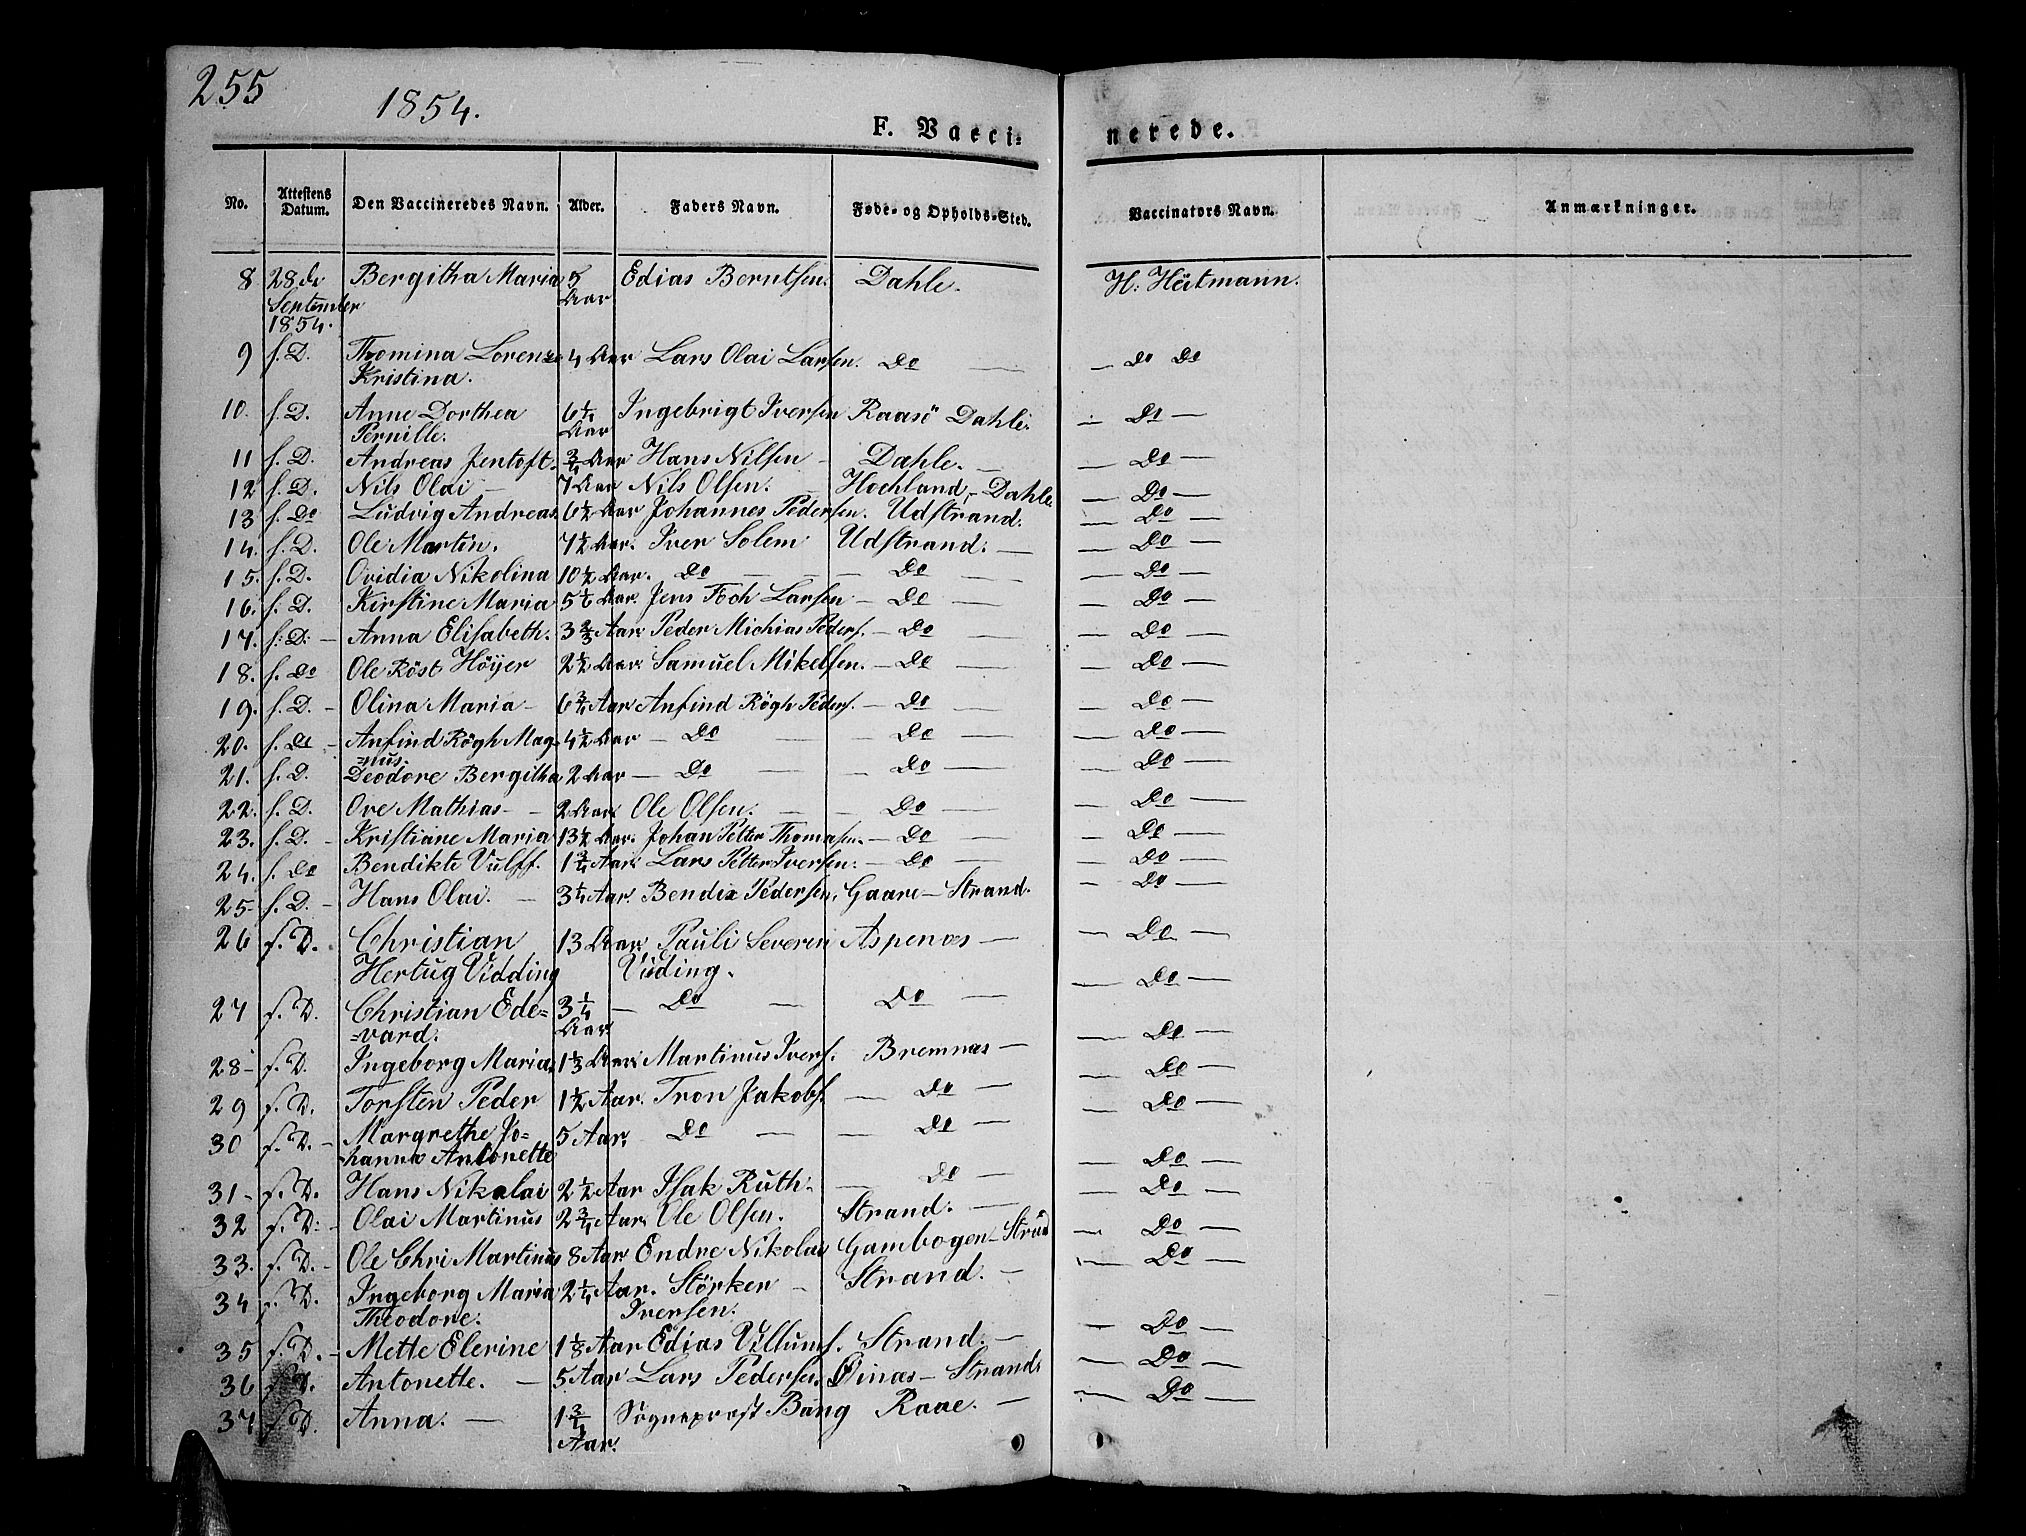 255
1854.
F. Vacci-
nerede.
No. Attestens Datum. Den Vaccineredes Navn. Alder. Faders Navn. Føde- og Opholds-Sted. Vaccinators Navn. Anmærkninger.
8 28de September 1854. Bergitha Maria 5 Aar Edias Berntsen. Dahle. H: Heitmann.
9 f. D. Thomina Lorense Kristina. 4 Aar Lars Olai Larsen. Do — — do do
10. f. D. Anne Dorthea Pernille. 6 1/4 Aar Ingebrigt Iversen Raasö Dahle. — Do —
11 f. D. Andreas Jentoft. 3/4 Aar Hans Nilsen — Dahle. — — Do —
12 f. D. Nils Olai — 7 Aar Nils Olsen. — Hochland, - Dahle — Do —
13 f. Do Ludvig Andreas. 6 1/2 Aar Johannes Pedersen. Udstrand. — Do —
14. f. D. Ole Martin. 7 1/2 Aar. Iver Solem Udstrand. — — Do —
15. f. D. Ovidia Nikolina 10 1/2 Aar. Do — — — Do — — Do —
16. f. D. Kirstine Maria 5 1/6 Aar. Jens Foch Larsen — Do — — Do —
17. f: D: — Anna Elisabeth. 3 2/3 Aar. Peder Michias Peders. — Do — — Do —
18. f. Do Ole Röst Höyer 2 1/2 Aar. Samuel Mikelsen. — Do — — Do —
19. f. D. — Olina Maria — 6 3/4 Aar Anfind Rögh Peders. — Do — — Do —
20. f. Do — Anfind Rögh Mag=nus. 4 1/2 Aar — Do — — Do — — Do —
21. f. D. Deodore Bergitha 2 Aar — Do — — Do — — Do —
22. f. D. Ove Mathias — — 2 Aar. Ole Olsen. — — Do — — Do —
23. f. D. — Kristiane Maria 13 1/2 Aar. Johan Petter Thomasen. — Do — — Do —
24. f. Do Bendikte Vulff. 1 3/4 Aar. Lars Petter Iversen. — Do — — Do —
25- f. D. — Hans Olai. — 3 1/4 Aar. Bendix Pedersen. Gaare — Strand. — Do —
26 f. D. Christian Hertug Vidding 13 Aar. Pauli Severin Viiding. Aspenæs — — Do —
27 f. D. Christian Ede=vard. 3 1/4 Aar — Do — Do — — Do —
28- f. D. Ingeborg Maria 1 1/3 Aar. Martinus Ivers. Bremnæs — — Do —
29 f. D. Torsten Peder 1 1/2 Aar. Tron Jakobs. — Do — — Do —
30 f. D. — Margrethe Jo=hanna Antonette 5 Aar. Do — — Do — — Do —
31- f. D. Hans Nikolai 2 1/2 Aar Isak Ruth. — Do — — Do —
32 f. D. — Olai Martinus 2 3/4 Aar. Ole Olsen. Strand. — — Do —
33. f. D. — Ole Chri Martinus 8 Aar Endre Nikolai Gambogen — Strand — Do —
34 f. D. Ingeborg Maria Theodore. 2 1/4 Aar. Störker — Iversen. Strand. — — Do —
35 f. D. — Mette Elerine 1 1/8 Aar Edias Villums. Strand. — — Do —
36 f. D. Antonette. — 5 Aar Lars Pedersen. Öinæs — Strand. — Do —
37 f. D. Anna. — 1 3/4 Aar. Sogneprest Bang Raae. — — Do —